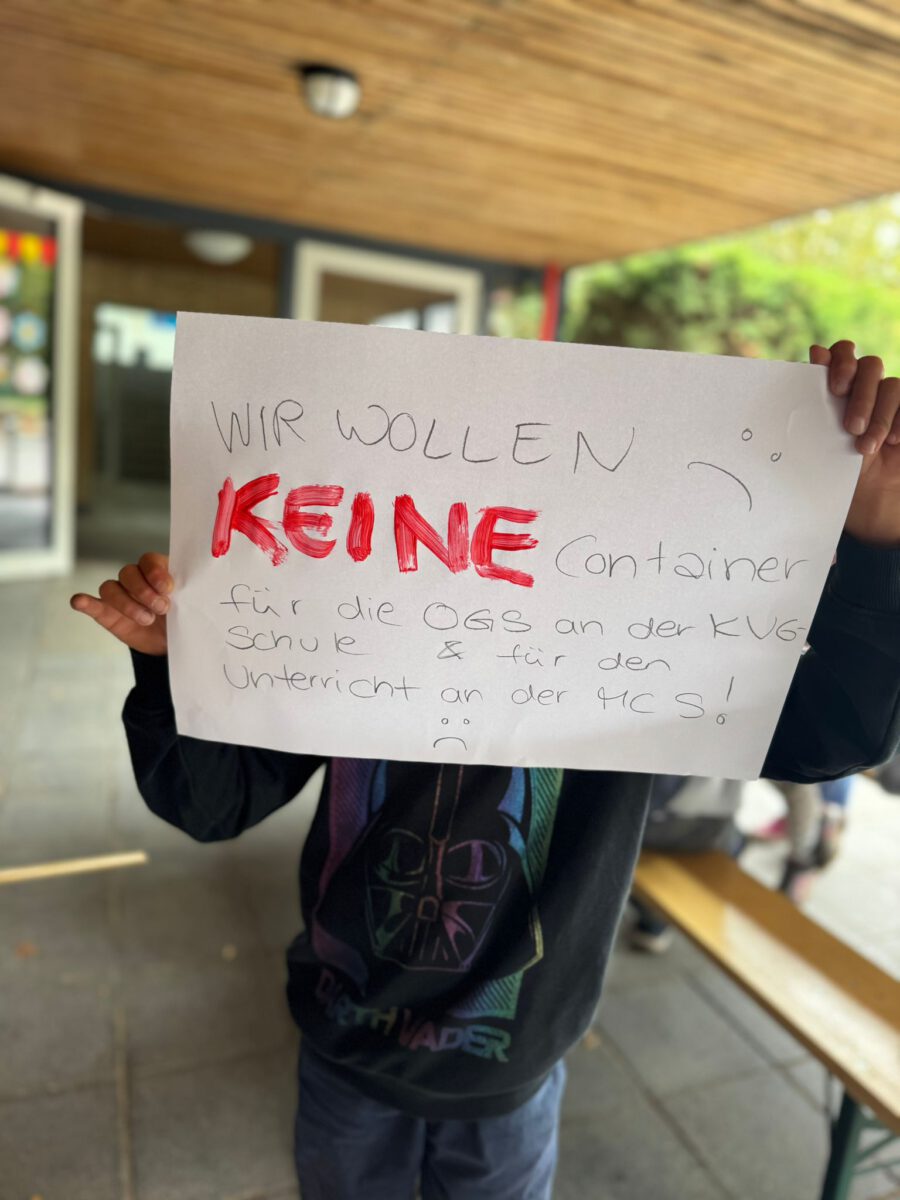 WIR WOLLEN
KEINE Container
für die OGS an der KVG-
Schule & für den
Unterricht an der MCS!
DARTH VADER